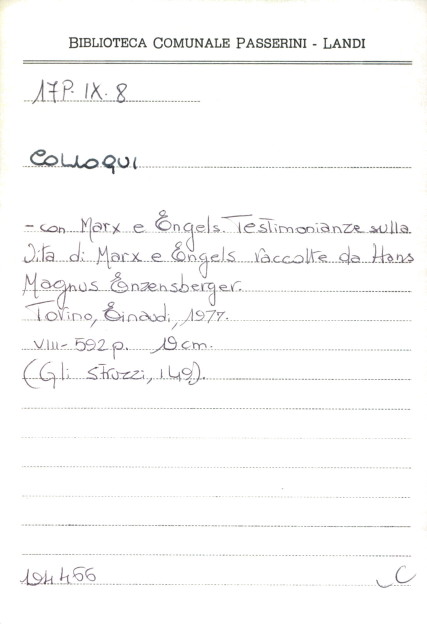 BIBLIOTECA COMUNALE PASSERINI - LANDI
17P. IX. 8
COLLOQUI
- con Marx e Engels. Testimonianze sulla
Vita di Marx e Engels raccolte da Hans
Magnus Enzensberger.
Torino, Einaudi, 1977.
VIII- 592 p. 19 cm.
(Gli struzzi, 149).
194466
C